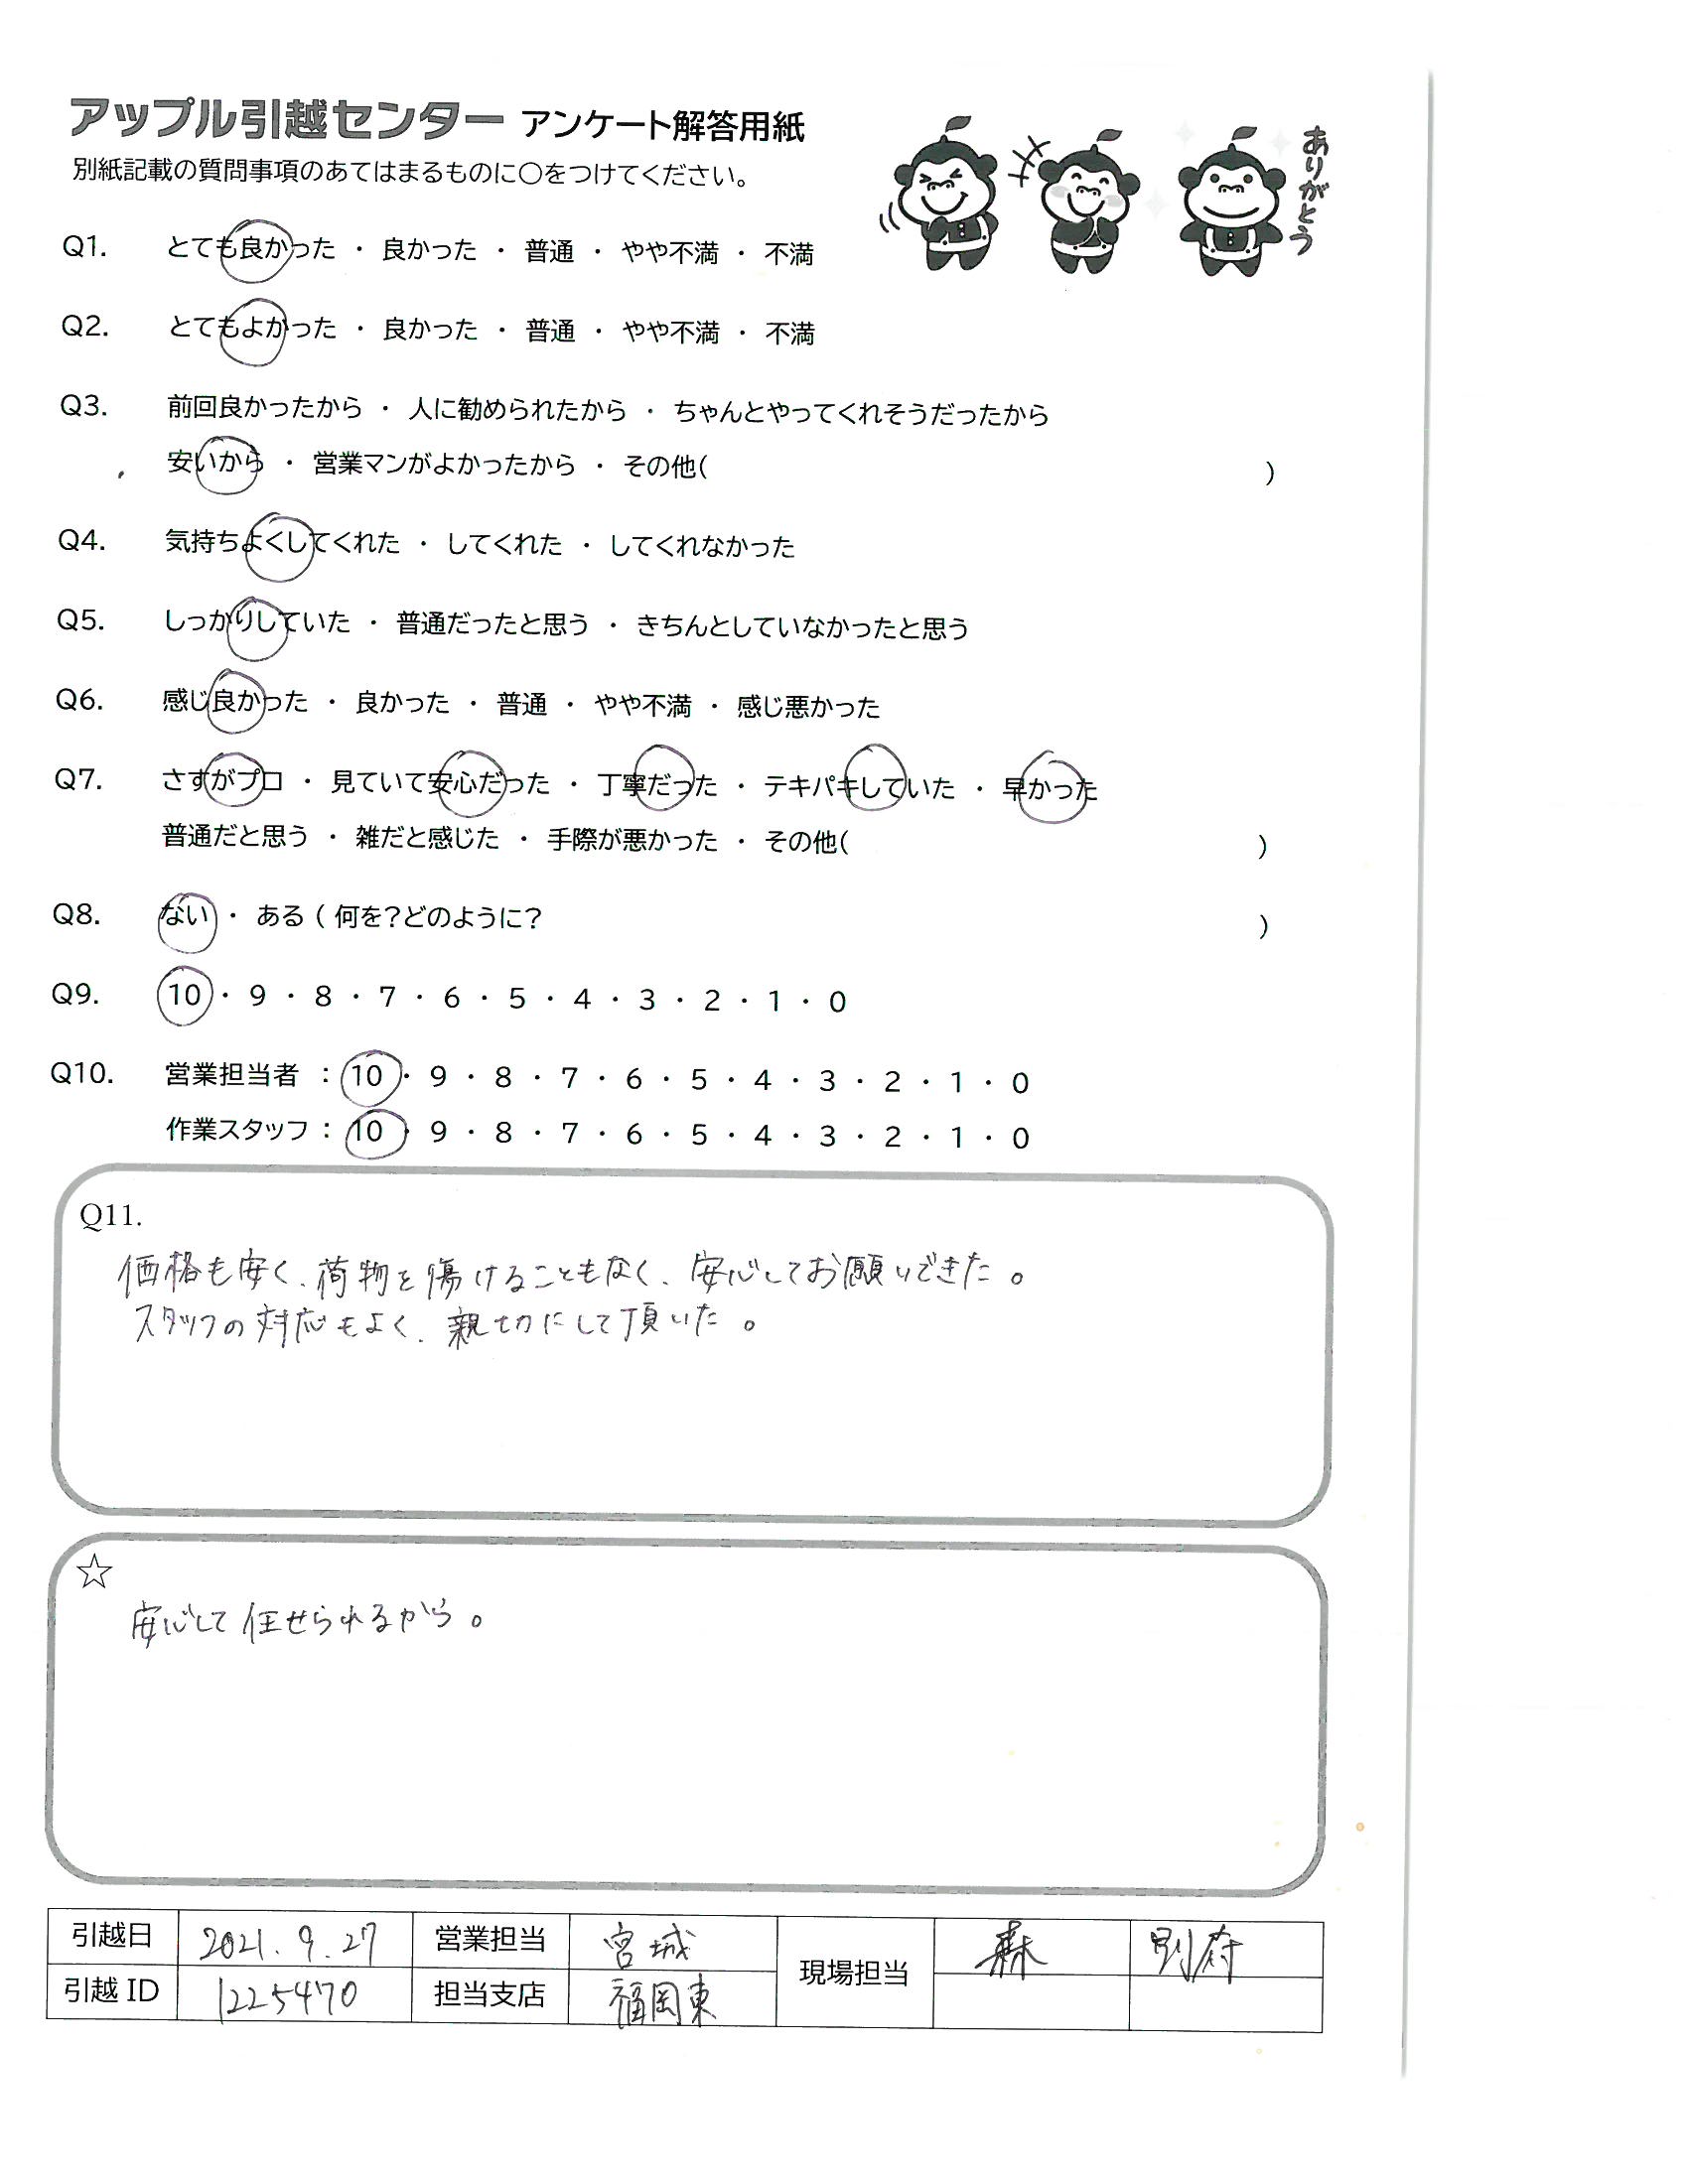 アップル引越センター アンケート解答用紙
別紙記載の質問事項のあてはまるものに〇をつけてください。
ありがとう
Q1. とても良かった ・ 良かった ・ 普通 ・ やや不満 ・ 不満
Q2. とてもよかった ・ 良かった ・ 普通 ・ やや不満 ・ 不満
Q3. 前回良かったから ・ 人に勧められたから ・ ちゃんとやってくれそうだったから
安いから ・ 営業マンがよかったから ・ その他( )
Q4. 気持ちよくしてくれた ・ してくれた ・ してくれなかった
Q5. しっかりしていた ・ 普通だったと思う ・ きちんとしていなかったと思う
Q6. 感じ良かった ・ 良かった ・ 普通 ・ やや不満 ・ 感じ悪かった
Q7. さすがプロ ・ 見ていて安心だった ・ 丁寧だった ・ テキパキしていた ・ 早かった
普通だと思う ・ 雑だと感じた ・ 手際が悪かった ・ その他( )
Q8. ない ・ ある ( 何を?どのように? )
Q9. 10 ・ 9 ・ 8 ・ 7 ・ 6 ・ 5 ・ 4 ・ 3 ・ 2 ・ 1 ・ 0
Q10. 営業担当者 : 10 ・ 9 ・ 8 ・ 7 ・ 6 ・ 5 ・ 4 ・ 3 ・ 2 ・ 1 ・ 0
作業スタッフ : 10 ・ 9 ・ 8 ・ 7 ・ 6 ・ 5 ・ 4 ・ 3 ・ 2 ・ 1 ・ 0
Q11.
価格も安く、荷物を傷けることもなく、安心してお願いできた。
スタッフの対応もよく、親切にして頂いた。
☆
安心して任せられるから。
引越日 2021.9.27 営業担当 宮城 現場担当 森 別府
引越ID 1225470 担当支店 福岡東